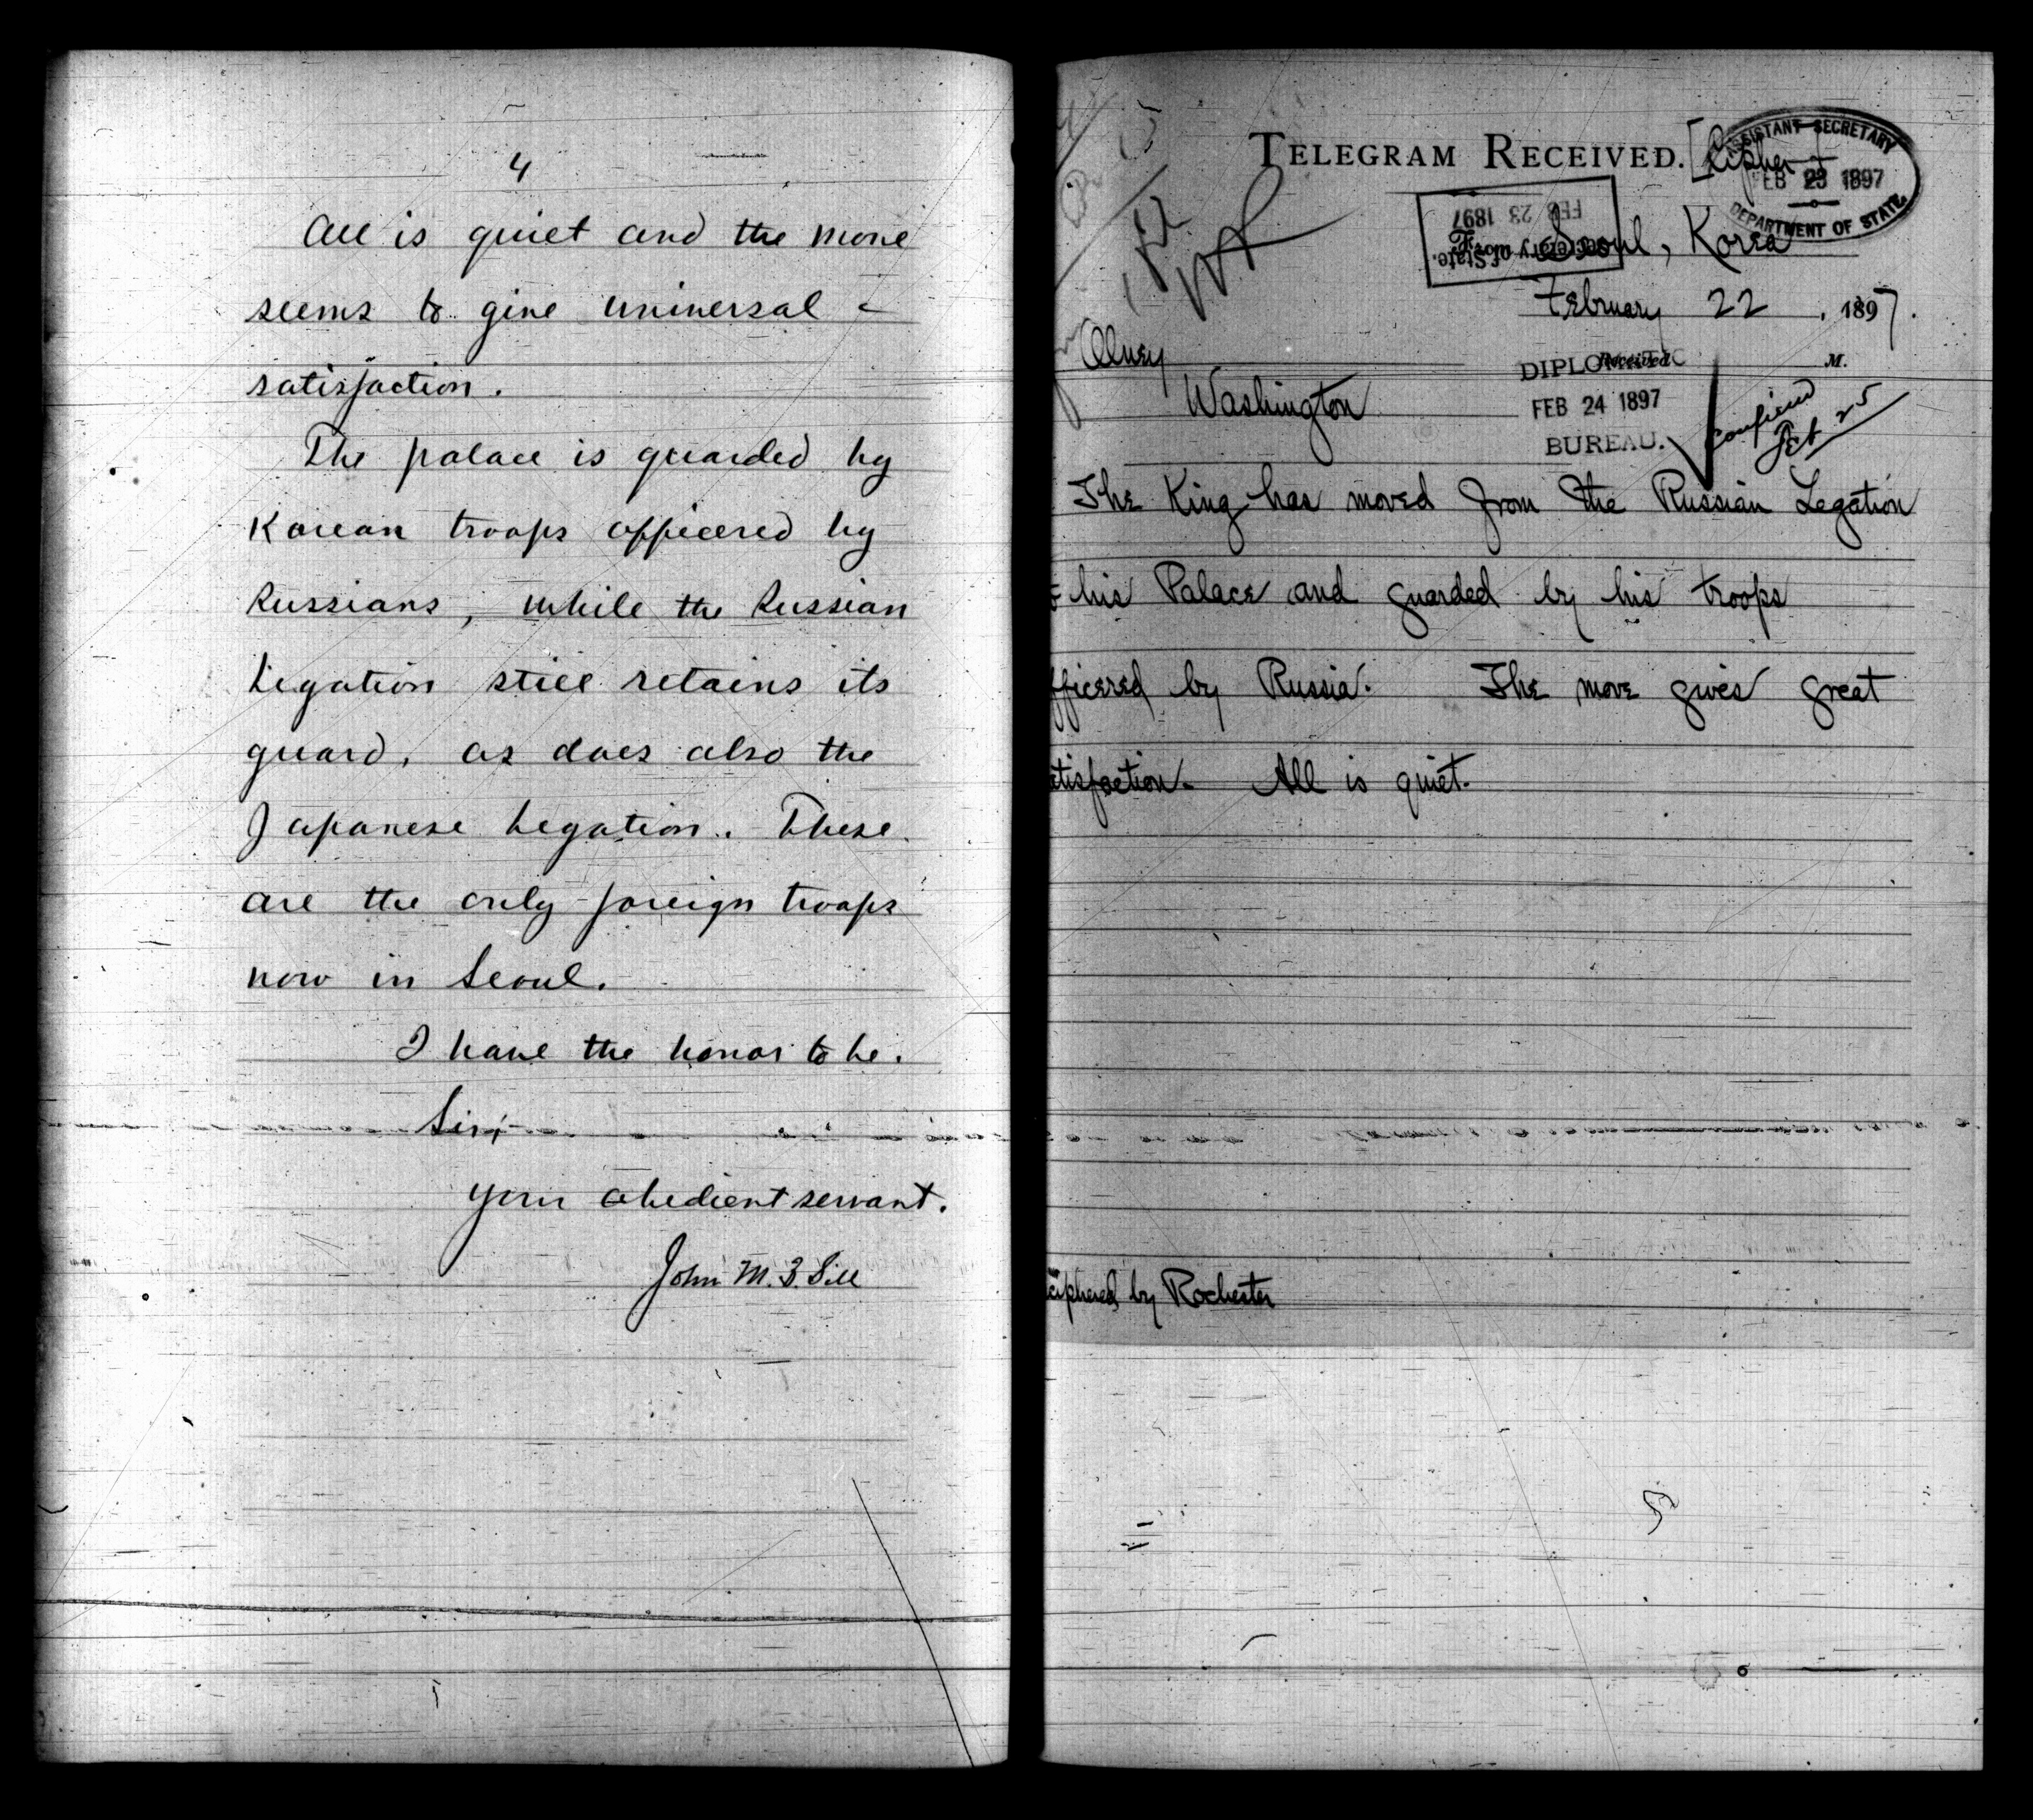 4
All is quiet and the move
seems to give universal
satisfaction.
The palace is guarded by
Korean troops officered by
Russians, while the Russian
Legation still retains its
guard, as does also the
Japanese Legation. These
are the only foreign troops
now in Seoul.
I have the honor to be.
Sir;
Your obedient servant.
John M. B. Sill
TELEGRAM RECEIVED. [Cipher]
ASSISTANT SECRETARY
FEB 23 1897
DEPARTMENT OF STATE
FEB 23 1897
From
Secretary of State.
Seoul, Korea
February 22, 1897.
Olney
Received M.
Washington
DIPLOMATIC
FEB 24 1897
BUREAU.
Confirmed
Feb 25
The King has moved from the Russian Legation
his Palace and guarded by his troops
fficered by Russia. The move gives great
atisfaction. All is quiet.
ciphered by Rochester